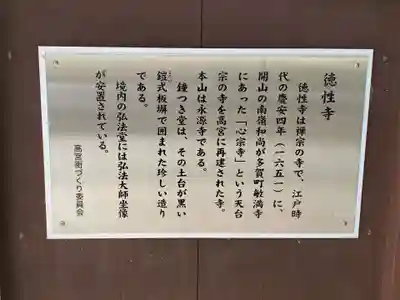 徳性寺
徳性寺は禅宗の寺で、江戸時
代の慶安四年（一六五一）に、
開山の南嶺和尚が多賀町敏満寺
にあった「心宗寺」という天台
宗の寺を高宮に再建された寺。
本山は永源寺である。
鐘つき堂は、その土台が黒い
鎧式板塀で囲まれた珍しい造り
である。
境内の弘法堂には弘法大師坐像
が安置されている。
高宮街づくり委員会